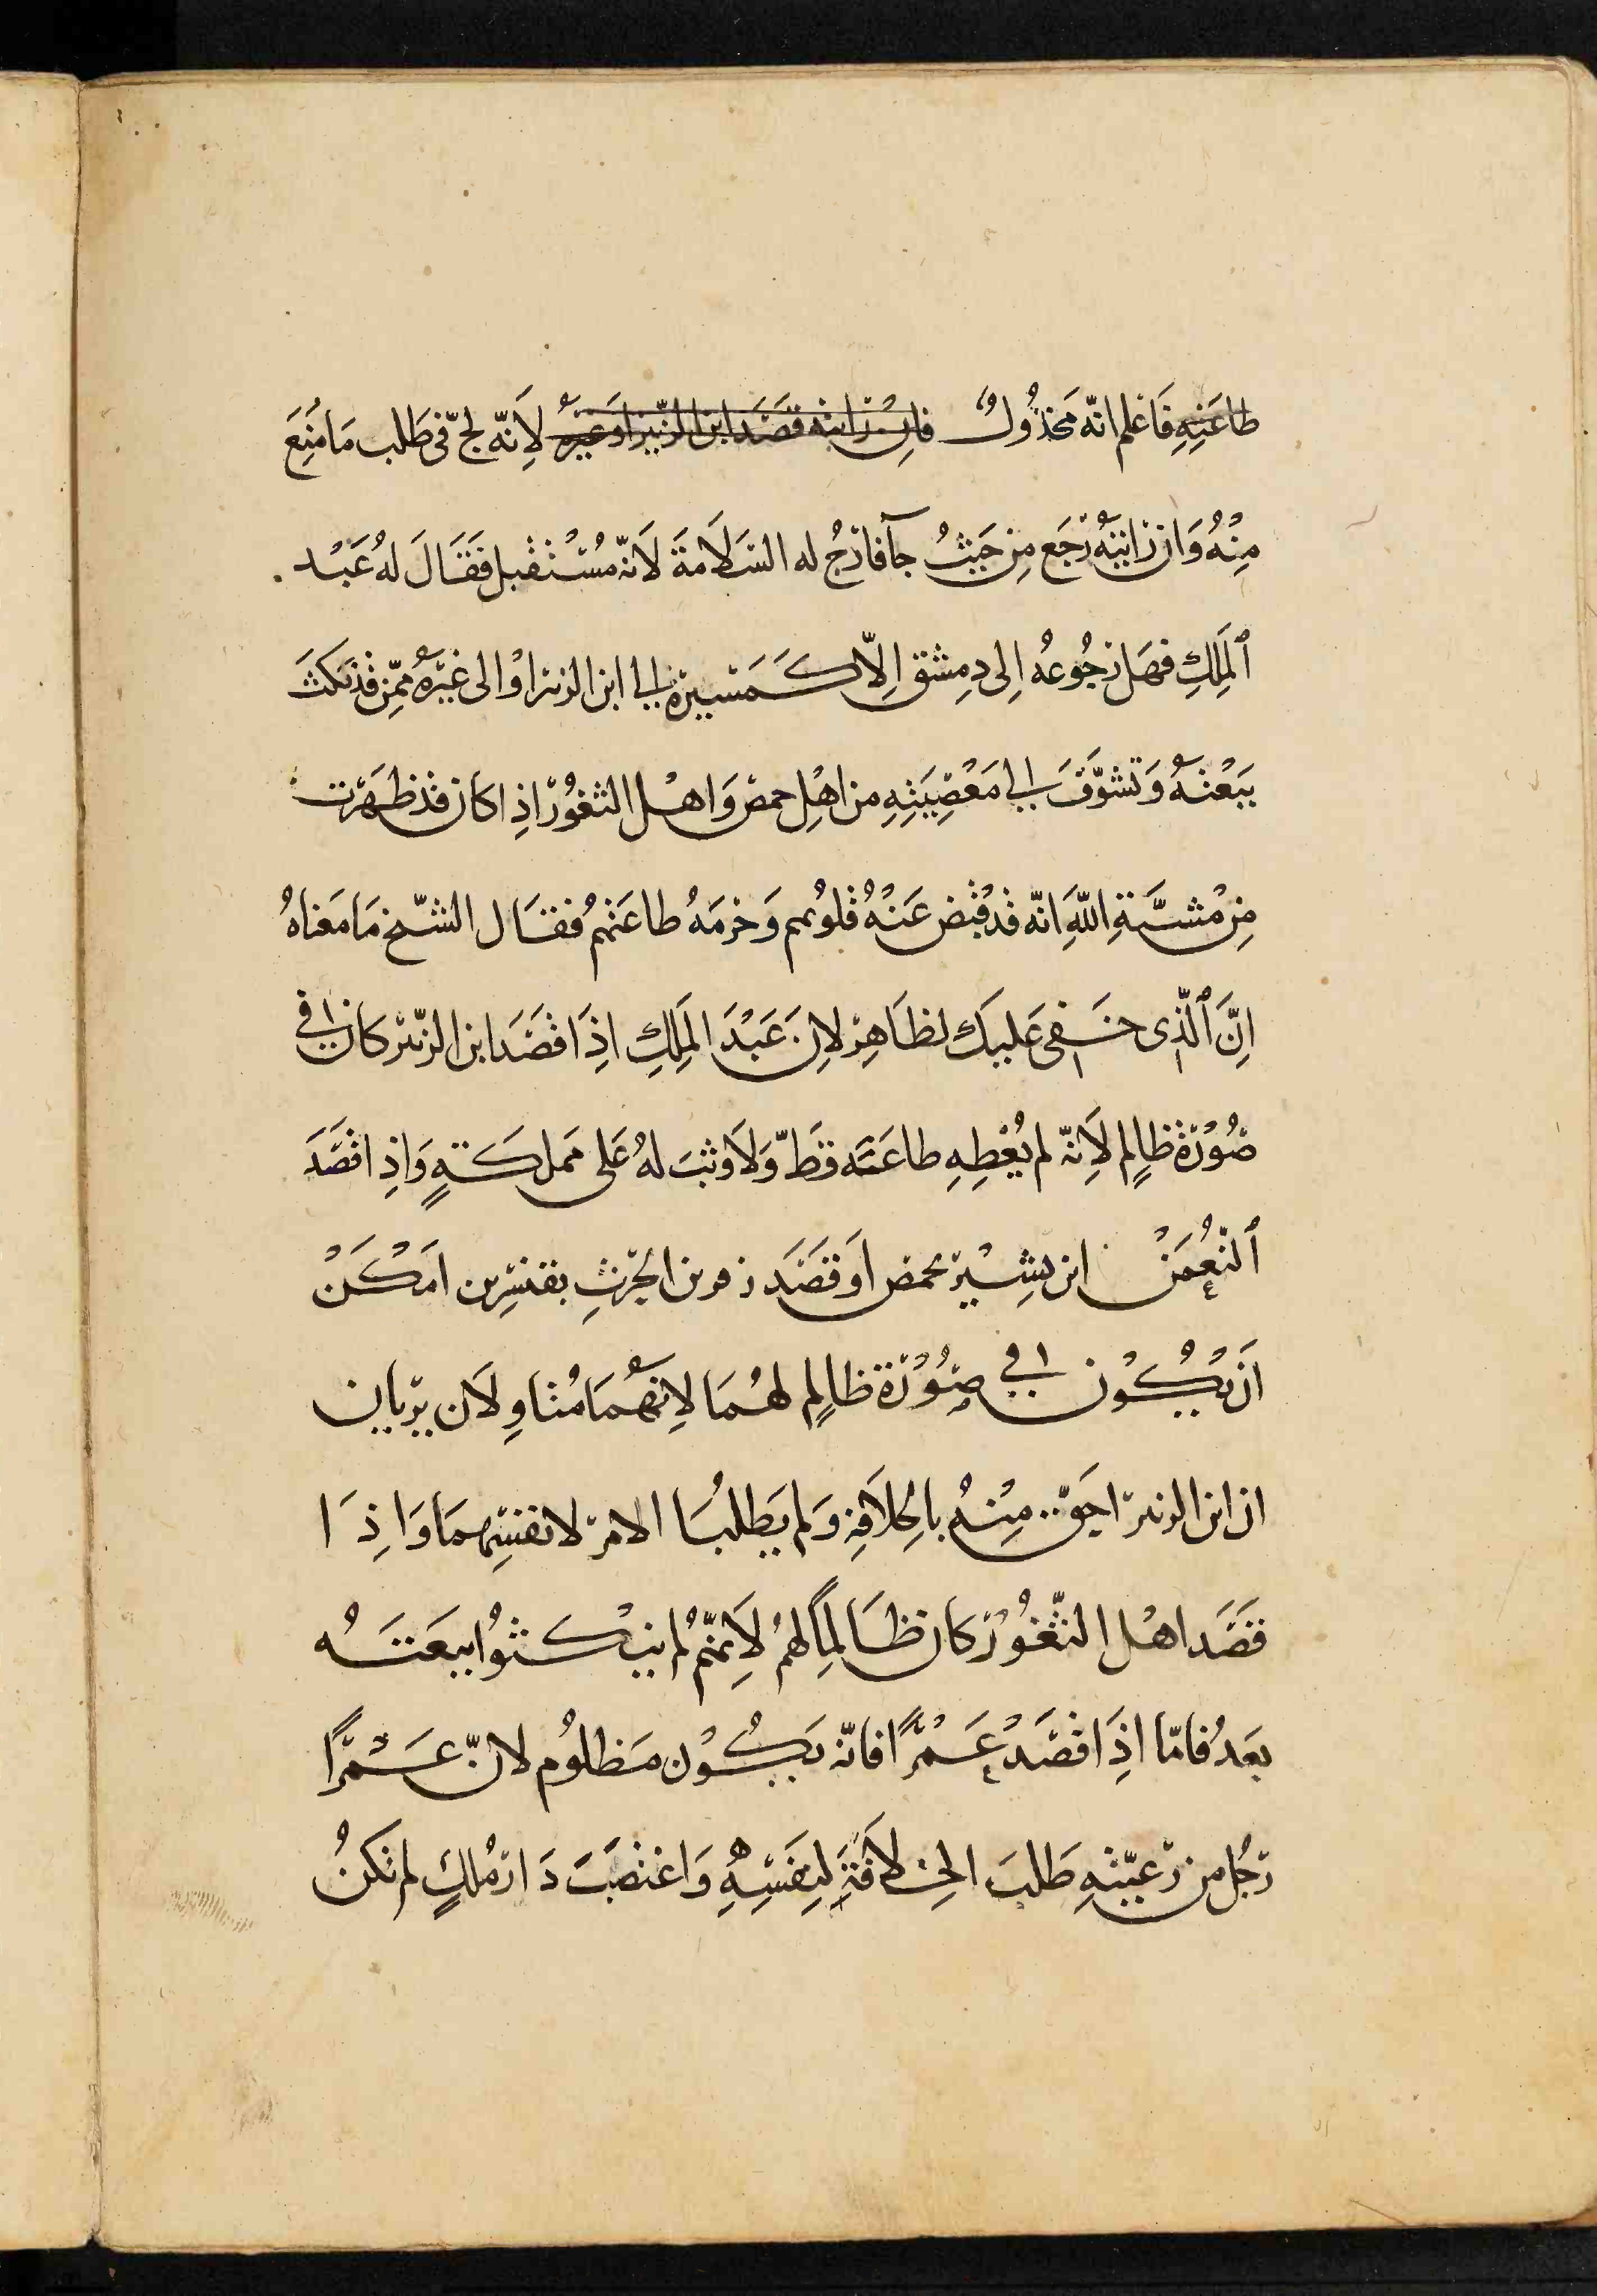 طَاعَتِهِ فَاعْلم انّه مَخذُولٌ فإن رَايته قصَدَ ابن الزبير اوغيره لَانّه لجّ فى طَلب مَا مُنِعَ
مِنْهُ وَان رَايتَهُ رَجَع مِن حَيثُ جآ فارجُ له السَلَامةَ لَانّه مُسْتَقْبِل فَقَالَ لهُ عَبْد
ٱلمَلِكِ فهَل رجُوعُه اِلى دِمِشق اِلّا كَمَسيرة الى ابن الزبير اوْ الى غيْرهُ ممِّن قد نكثَ
بَيْعْتهُ وَتشوّفَ الى مَعْصِيَتِهِ من اهْلِ حمص وَاهْل الثغُوْر اذِا كان قد ظهَرت
مِنْ مشَيَّةِ اللّهِ انّه قد قبْض عَنْهُ قلوُبهم وَحْرمَهُ طاعَتهُم فقال الشيّخ مَا مَعْناهُ
اِنَّ ٱلّذى خَفِى عَليكَ لظاهِر لاِنَ عَبْدَ المَلِكِ اذِا قصَدَ ابن الزبّير كان فى
صُوْرَة ظالِمٍ لَاِنّه لم يُعْطِهِ طاعَتَه قطّ وَلَا وثبَ لهُ عَلى مَملكَتهٍ وَاذِا قصَّدَ
ٱلنّعُمَنْ ابن بشِيْر بحمص اَو قصَدَ زفر بن الحرْثِ بقنسّرِين امَكَنْ
اَن يَكُون فى صُوْرَة ظالِمٍ لهُمَا لاِنهُمَا مُتَاوِلَان يرَيان
ان ابن الزبير احَقّ مِنْهُ بالخِلَافِة وَلم يَطلبُا الامر لانفسِهمَا وَاذِا
قصَدَ اهْل الثّغُوْر كان ظَالِمًا لهُم لَاِنهّمُ لم ينْكثُوا بيعَتَهُ
بعَدُ فامّا اذَِا قصَدْ عَمْرًا فانّه يَكُوْن مَظلوُم لانّ عَمْرًا
رَجُل من رَعيّتهِ طَلبَ الخِلَافَةَ لِنَفسِهِ وَاغتصَبَ دَار مُلكٍ لم تكنُ